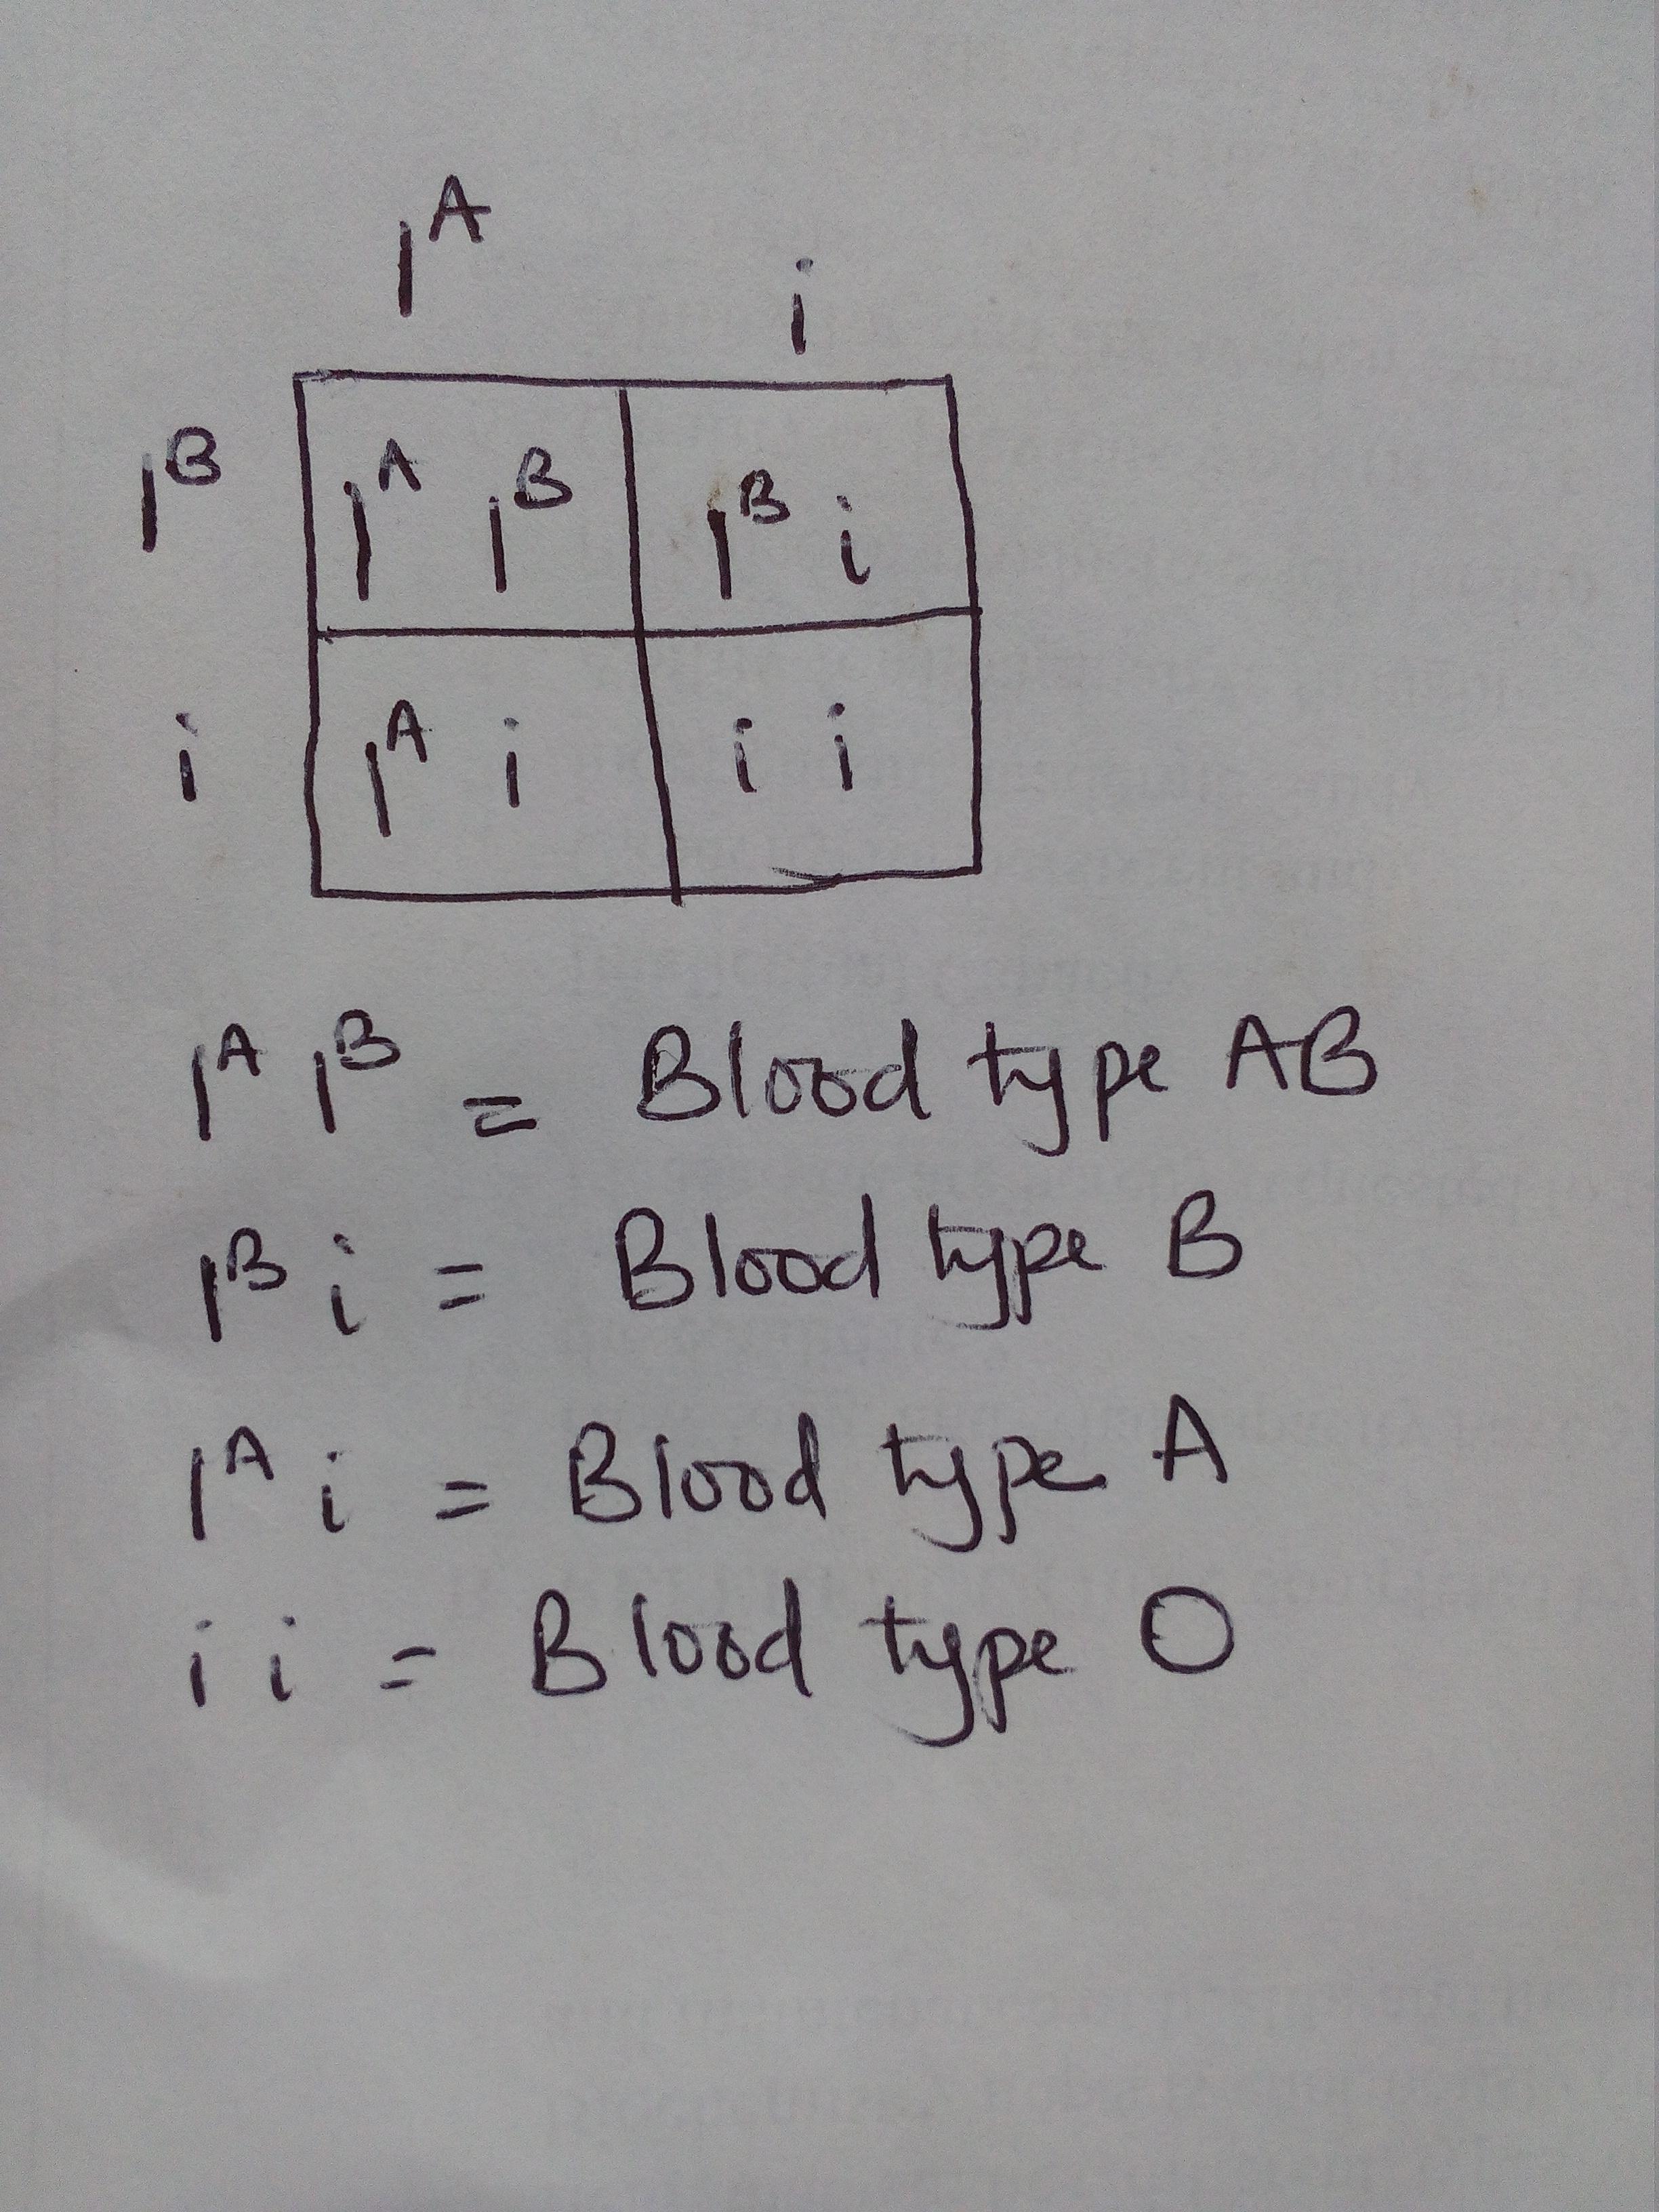 I^A i
I^B I^A I^B I^B i
i I^A i i i
I^A I^B = Blood type AB
I^B i = Blood type B
I^A i = Blood type A
i i = Blood type O